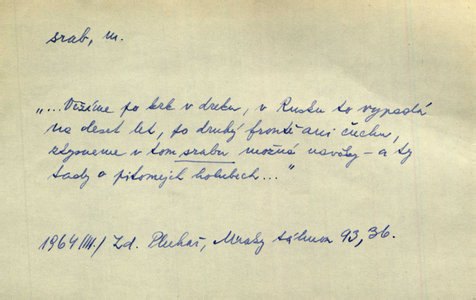 srab, m.
"...Vězíme po krk v dreku, v Rusku to vypadá
na deset let, po druhý frontě ani čuchu,
ztvrdneme v tom srabu možná navěky – a ty
tady o pitomejch holubech..."
1964/III./ Zd. Pluhař, Mraky táhnou 93, 36.